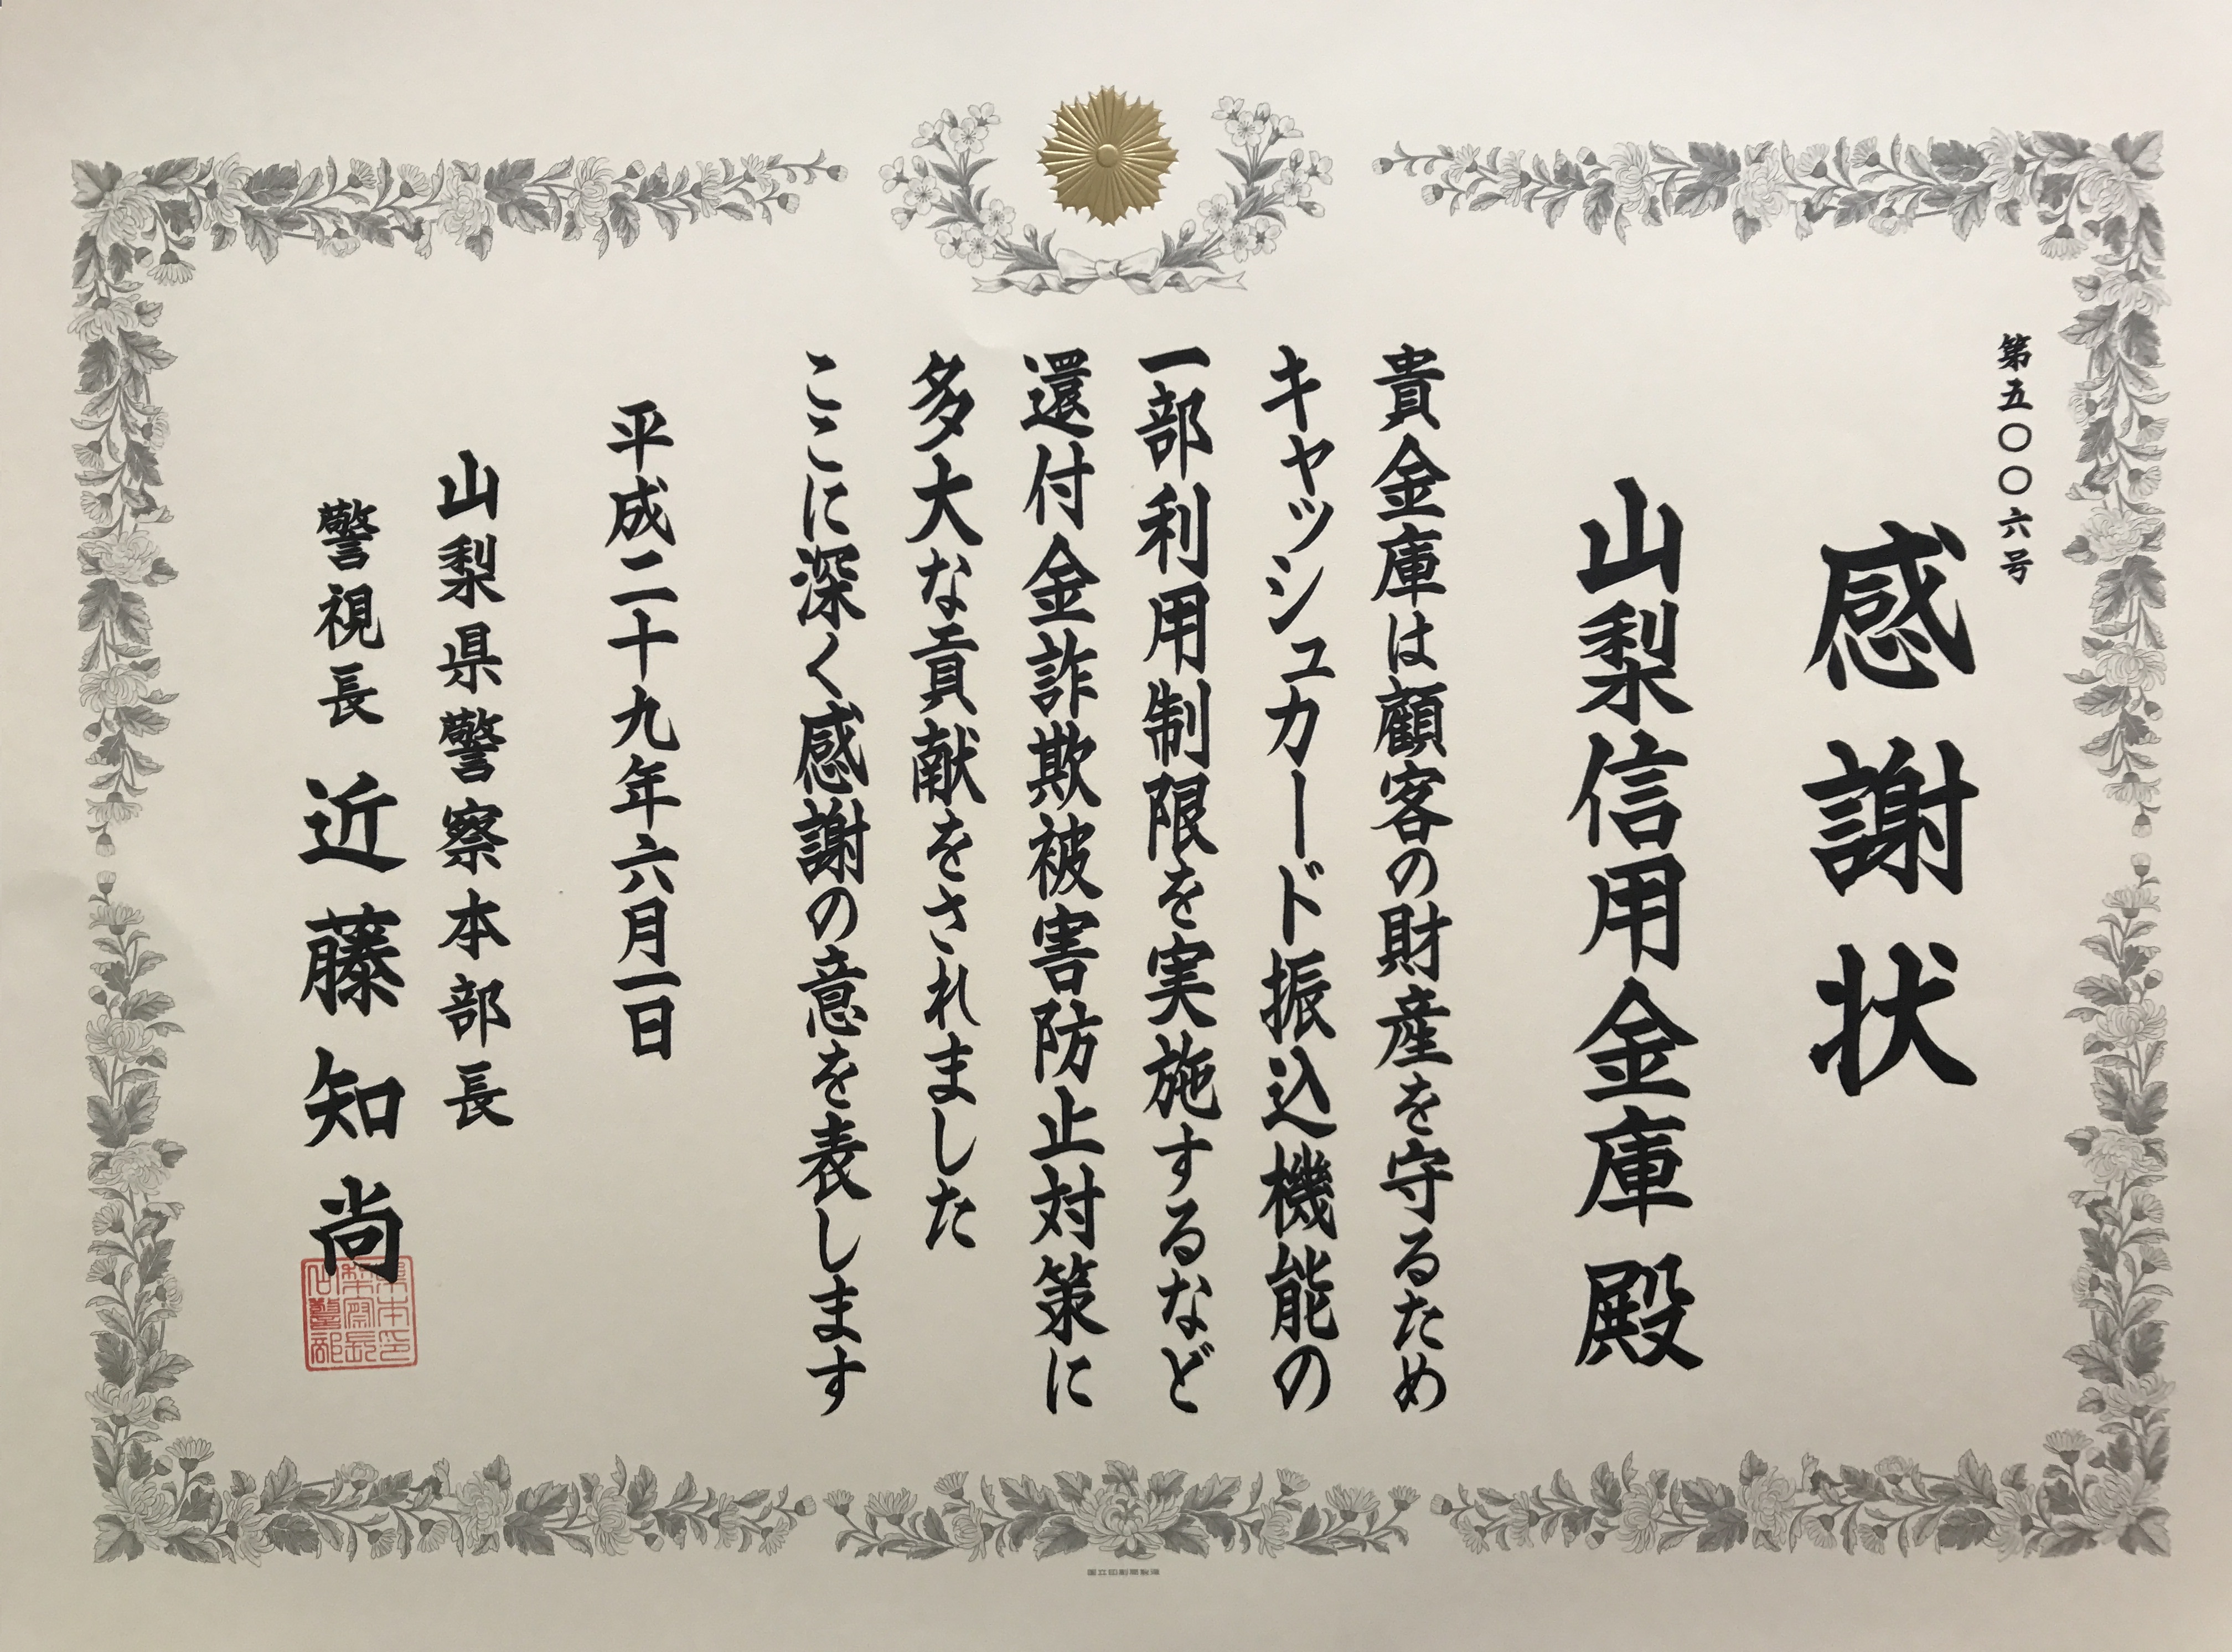 第五〇〇六号
感謝状
山梨信用金庫 殿
貴金庫は顧客の財産を守るため
キャッシュカード振込機能の
一部利用制限を実施するなど
還付金詐欺被害防止対策に
多大な貢献をされました
ここに深く感謝の意を表します
平成二十九年六月一日
山梨県警察本部長
警視長 近藤知尚